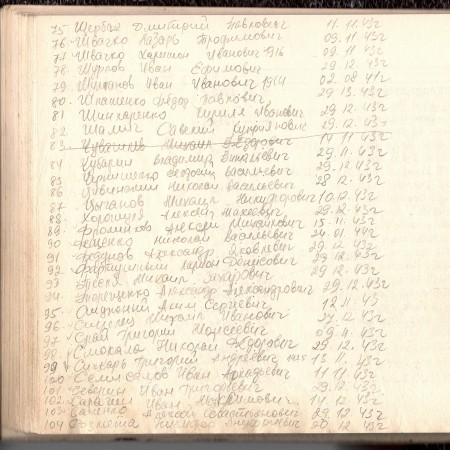 75 Щербак Дмитрий Павлович 11.11.43г
76. Швачко Назарь Трофимович 09.11.43г
77 Швачко Харитон Иванович 1916 09.11.43г
78. Шурпов Иван Ефимович 29.12.43г
79. Иван Иванович 1914 02.08.41г
80. Шпашенко Фёдор Павлович 29.13.43г
81 Шинкаренко Кирилл Иванович 29.12.43г
82 Шалит Савелий Куприянович 29.12.43г
83. Михаил Фёдорович 11.11.43г
84 Чубакин Владимир Витальевич 29.11.43г
85 Васильевич 29.12.43г
86 Николай Васильевич 28.12.43г
87 Цыганов Михаил Никифорович 10.12.43г
88. Хорошун Алексей Макеевич 29.12.43г
89. Алексей Михайлович 15.11.43г
90 Фещенко Николай Васильевич 24.01.44г
91 Федунов Александр Яковлевич 29.12.43г
92 Ларион Денисович 29.12.43г
93 Михаил Захарович 29.12.43г
94 Терещенко Александр Александрович 29.12.43г
95. Аким Сергеевич 12.11.43
96 Михаил Иванович 27.12.43г
97 Григорий Моисеевич 09.11.43г
98 Смокало Николай Фёдорович 29.12.43г
99 Григорий Андреевич 1925 13.11.43г
100 Иван Аркадьевич 11.11.43г
101 Северин Иван Григорьевич 29.12.43г
102. Сарагин Иван Максимович 14.12.43г
103 Саченко Алексей Севастьянович 29.12.43г
104 Никифор 20.12.43г